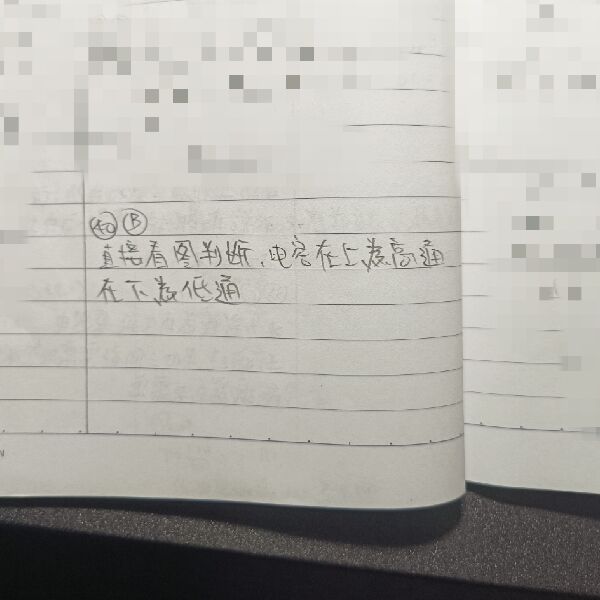 40 B
直接看图判断,电容在上为高通
在下为低通